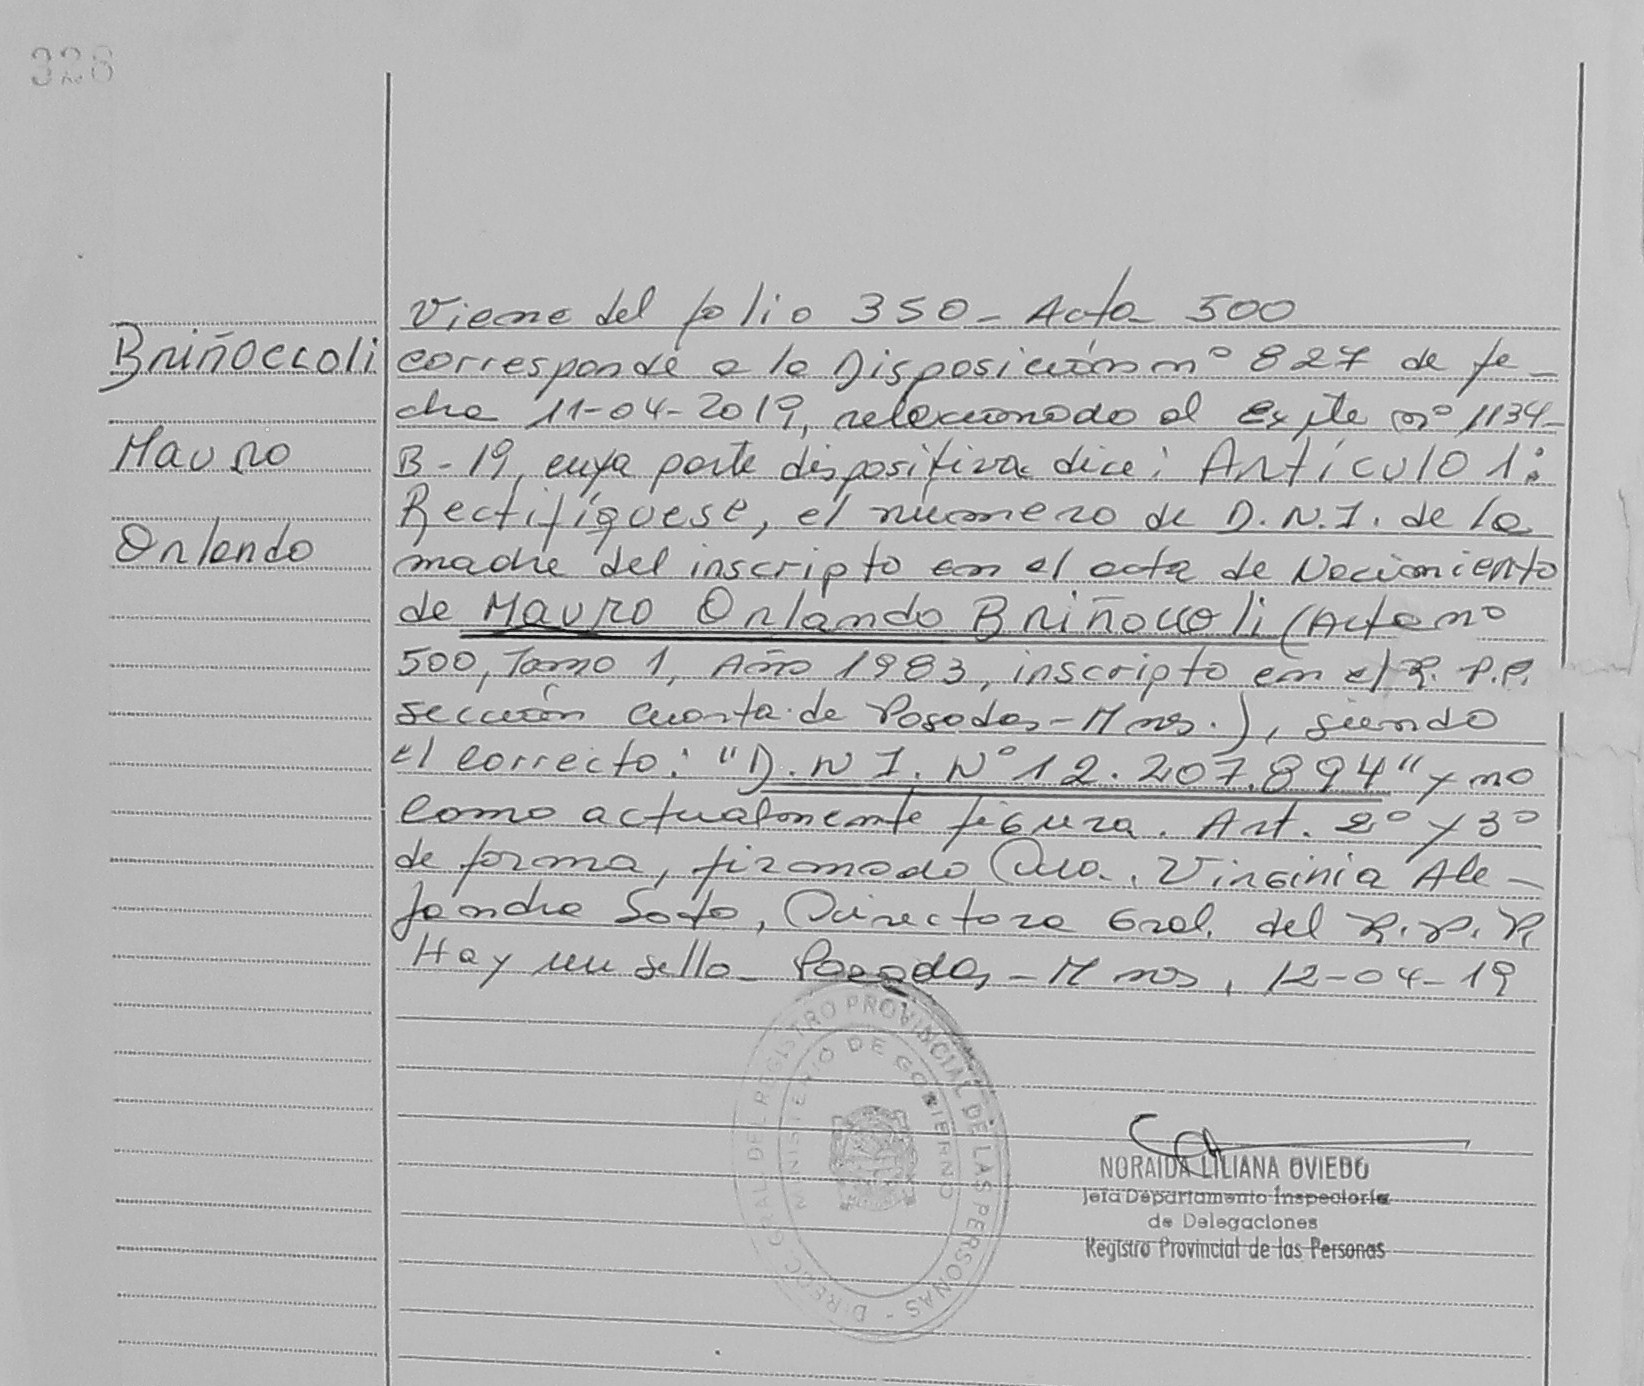 328
Briñoccoli
Mauro
Orlando
Viene del folio 350 - Acta 500
corresponde a la Disposición nº 827 de fe-
cha 11-04-2019, relacionado al Expte nº 1134-
B-19, cuya parte dispositiva dice: Artículo 1:
Rectifíquese, el número de D.N.I. de la
madre del inscripto en el acta de Nacimiento
de Mauro Orlando Briñoccoli (Acta nº
500, Tomo 1, Año 1983, inscripto en el R.P.P.
sección cuarta de Posadas-Mnes.), siendo
el correcto: "D.N I. Nº 12.207.894" y no
como actualmente figura. Art. 2º y 3º
de forma, firmado Dra. Virginia Ale-
jandra Soto, Directora Gral. del R.P.P.
Hay un sello - Posadas, - Mnes, 12-04-19
DIRECC. GRAL. DEL REGISTRO PROVINCIAL DE LAS PERSONAS -
MINISTERIO DE GOBIERNO
NORAIDA LILIANA OVIEDO
Jefa Departamento Inspectoría
de Delegaciones
Registro Provincial de las Personas